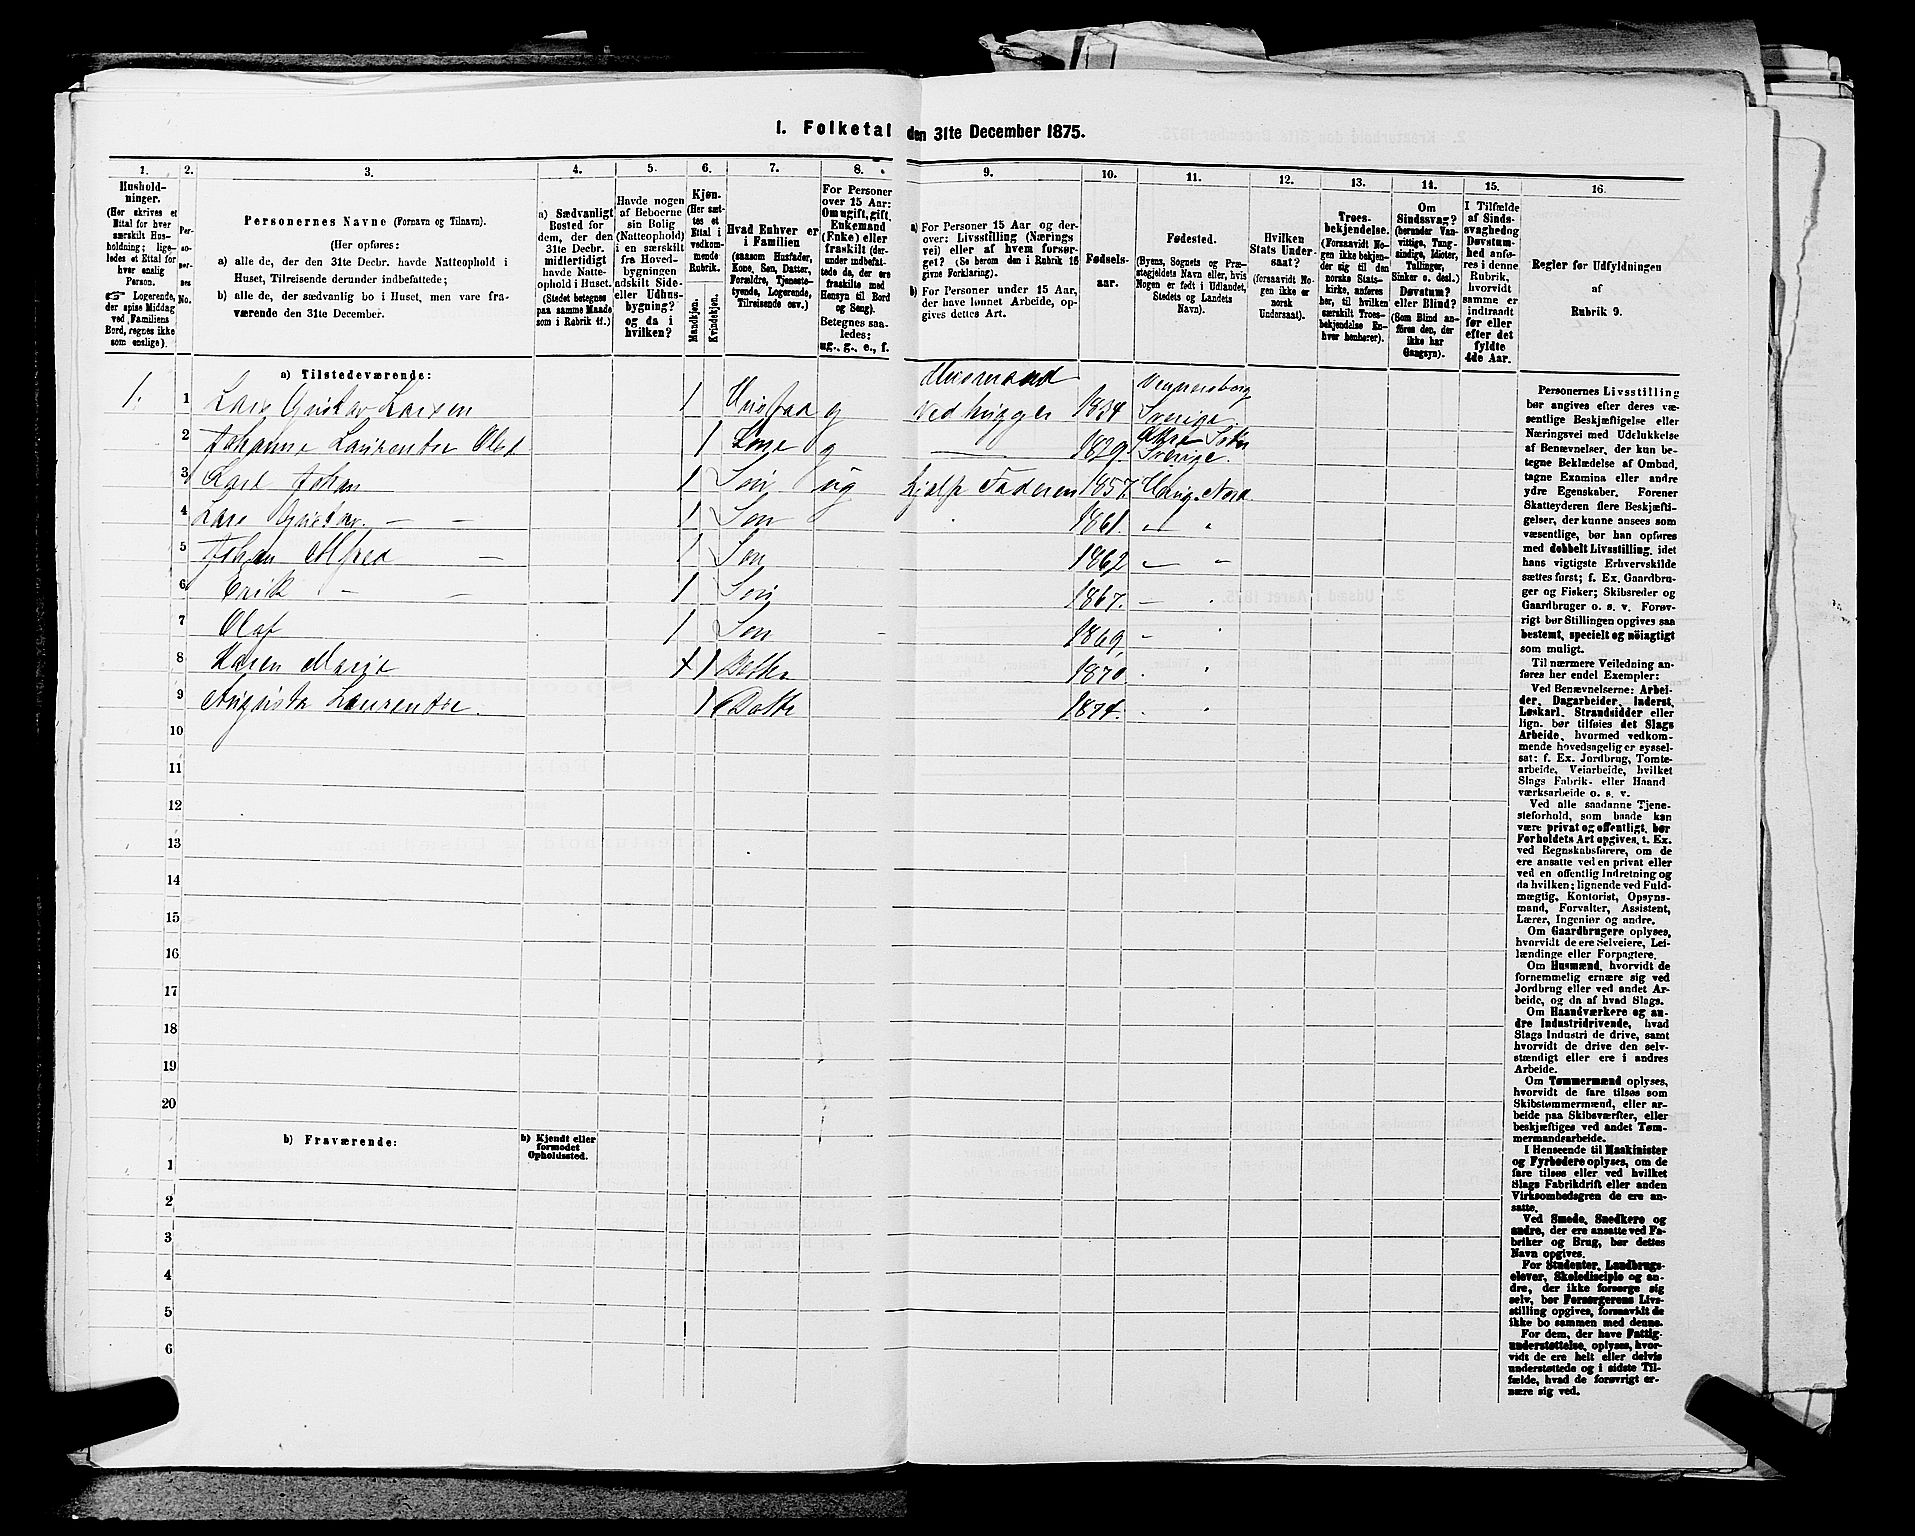 1. Folketal den 31te December 1875.
1. 2. 3. 4. 5. 6. 7. 8. 9. 10. 11. 12. 13. 14. 15. 16.
Hushold-
ninger.
(Her skrives et
Ettal for hver
særskilt Hus-
holdning; lige-
ledes et Ettal for
hver enslig
Person.
☞ Logerende,
der spise Middag
ved Familiens
Bord, regnes ikke
som enslige).
Per-
so-
ner-
nes
No.
Personernes Navne (Fornavn og Tilnavn).
(Her opføres:
a) alle de, der den 31te Decbr. havde Natteophold i
Huset, Tilreisende derunder indbefattede;
b) alle de, der sædvanlig bo i Huset, men vare fra-
værende den 31te December.
a) Sædvanligt
Bosted for
dem, der den
31te Decbr.
midlertidigt
havde Natte-
ophold i Huset.
(Stedet betegnes
paa samme Maade
som i Rubrik 11.)
Havde nogen
af Beboerne
sin Bolig
(Natteophold)
i en særskilt
fra Hoved-
bygningen
adskilt Side-
eller Udhus-
bygning?
og da i
hvilken?
Kjøn.
(Her sæt-
tes et
Ettal i
vedkom-
mende
Rubrik.
Mandkjøn.
Kvindekjøn.
Hvad Enhver er
i Familien
(saasom Husfader,
Kone, Søn, Datter,
Forældre, Tjeneste-
tyende, Logerende,
Tilreisende osv.)
For Personer
over 15 Aar:
Om ugift, gift,
Enkemand
(Enke) eller
fraskilt (der-
under indbefat-
tede da, der ere
fraskilte med
Hensyn til Bord
og Seng).
Betegnes saa-
ledes:
ug., g., e., f.
a) For Personer 15 Aar og der-
over: Livsstilling (Nærings
vei) eller af hvem forsør-
get? (Se herom den i Rubrik 16
givne Forklaring).
b) For Personer under 15 Aar,
der have lønnet Arbeide, op-
gives dettes Art.
Fødsels-
aar.
Fødested.
(Byens, Sognets og Præ-
stegjeldets Navn eller, hvis
Nogen er født i Udlandet,
Stedets og Landets
Navn).
Hvilken
Stats Under-
saat?
(forsaavidt No-
gen ikke er
norsk
Undersaat).
Troes-
bekjendelse.
(Forsaavidt No-
gen ikke bekjen-
der sig til den
norske Stats-
kirke, anføres
her, til hvilken
særskilt Troes-
bekjendelse En-
hver henhører).
Om
Sindssvag?
(herunder Van-
vittige, Tung-
sindige, Idioter,
Tullinger,
Sinker o. desl.)
Døvstum?
eller Blind?
(Som Blind an-
føres den, der
ikke har
Gangsyn).
I Tilfælde
af Sinds-
svaghed og
Døvstum-
hed anfø-
res i denne
Rubrik,
hvorvidt
samme er
indtraadt
før eller
efter det
fyldte
4de Aar.
Regler for Udfyldningen
af
Rubrik 9.
a) Tilstedeværende:
1. 1 Lars Gustav Larsen 1 Husfad g Husmand Vedhugger 1834 Vennersborg Sverige
2 Johanne Laurentse Olsd 1 Kone g 1829. Sverige.
3 Karl Johan 1 Søn ug hjelp Faderen 1857
4 Lars Gustav. - - 1 Søn 1861. - "
5 Johan Alfred - 1 Søn 1862 - "
6 Erik - - 1 Søn 1867. - "
7 Olaf 1 Søn 1869. - "
8 Karen Marie 1 Datter 1870. "
9 Augusta Laurentse. 1 Datte 1874. "
10
11
12
13
14
15
16
17
18
19
20
b) Fraværende:
b) Kjendt eller
formodet
Opholdssted.
1
2
3
4
5
6
Personernes Livsstilling
bør angives efter deres væ-
sentlige Beskjæftigelse eller
Næringsvei med Udelukkelse
af Benævnelser, der kun be-
tegne Beklædelse af Ombud,
tagne Examina eller andre
ydre Egenskaber. Forener
Skatteyderen flere Beskjæfti-
gelser, der kunne ansees som
væsentlige, bør han opføres
med dobbelt Livsstilling, idet
hans vigtigste Erhvervskilde
sættes først; f. Ex. Gaardbru-
ger og Fisker; Skibsreder og
Gaardbruger o. s. v. Forøv-
rigt bør Stillingen opgives saa
bestemt, specielt og nöiagtigt
som muligt.
Til nærmere Veiledning an-
føres her endel Exempler:
Ved Benævnelserne: Arbei-
der, Dagarbeider, Inderst,
Løskarl, Strandsidder eller
lign. bør tilføies det Slags
Arbeide, hvormed vedkom-
mende hovedsagelig er syssel-
sat: f. Ex. Jordbrug, Tomte-
arbeide, Veiarbeide, hvilket
Slags Fabrik- eller Haand
værksarbeide o. s. v.
Ved alle saadanne Tjene-
steforhold, som baade kan
være privat og offentligt, bør
Forholdets Art opgives, t. Ex.
ved Regnskabsførere, om de
ere ansatte ved en privat eller
ved en offentlig Indretning og
da hvilken; lignende ved Fuld-
mægtig, Kontorist, Opsyns-
mand, Forvalter, Assistent,
Lærer, Ingeniør og andre.
Om Gaardbrugere oplyses,
hvorvidt de ere Selveiere, Lei-
lændinge eller Forpagtere.
Om Husmænd, hvorvidt de
fornemmelig ernære sig ved
Jordbrug eller ved andet Ar-
beide, og da af hvad Slags.
Om Haandværkere og an-
dre Industridrivende, hvad
Slags Industri de drive, samt
hvorvidt de drive den selv-
stændigt eller ere i andres
Arbeide.
Om Tømmermænd oplyses,
hvorvidt de fare tilsøs som
Skibstømmermænd, eller ar-
beide paa Skibsværfter, eller
beskjæftiges ved andet Tøm-
mermandsarbeide.
I Henseende til Maskinister
og Fyrbødere oplyses, om de
fare tilsøs eller ved hvilket
Slags Fabrikdrift eller anden
Virksomhedsgren de ere an-
satte.
Ved Smede, Snedkere og
andre, der ere ansatte ved Fa-
briker og Brug, bør dettes
Navn opgives.
For Studenter, Landbrugs-
elever, Skoledisciple og an-
dre, der ikke forsørge sig
selv, bør Forsørgerens Livs-
stilling opgives, forsaavidt de
ikke bo sammen med denne.
For dem, der have Fattig-
understøttelse, oplyses, hvor-
vidt de ere helt eller delvis
understøttede og i sidste Til-
fælde, hvad de forøvrigt er-
nære sig ved.